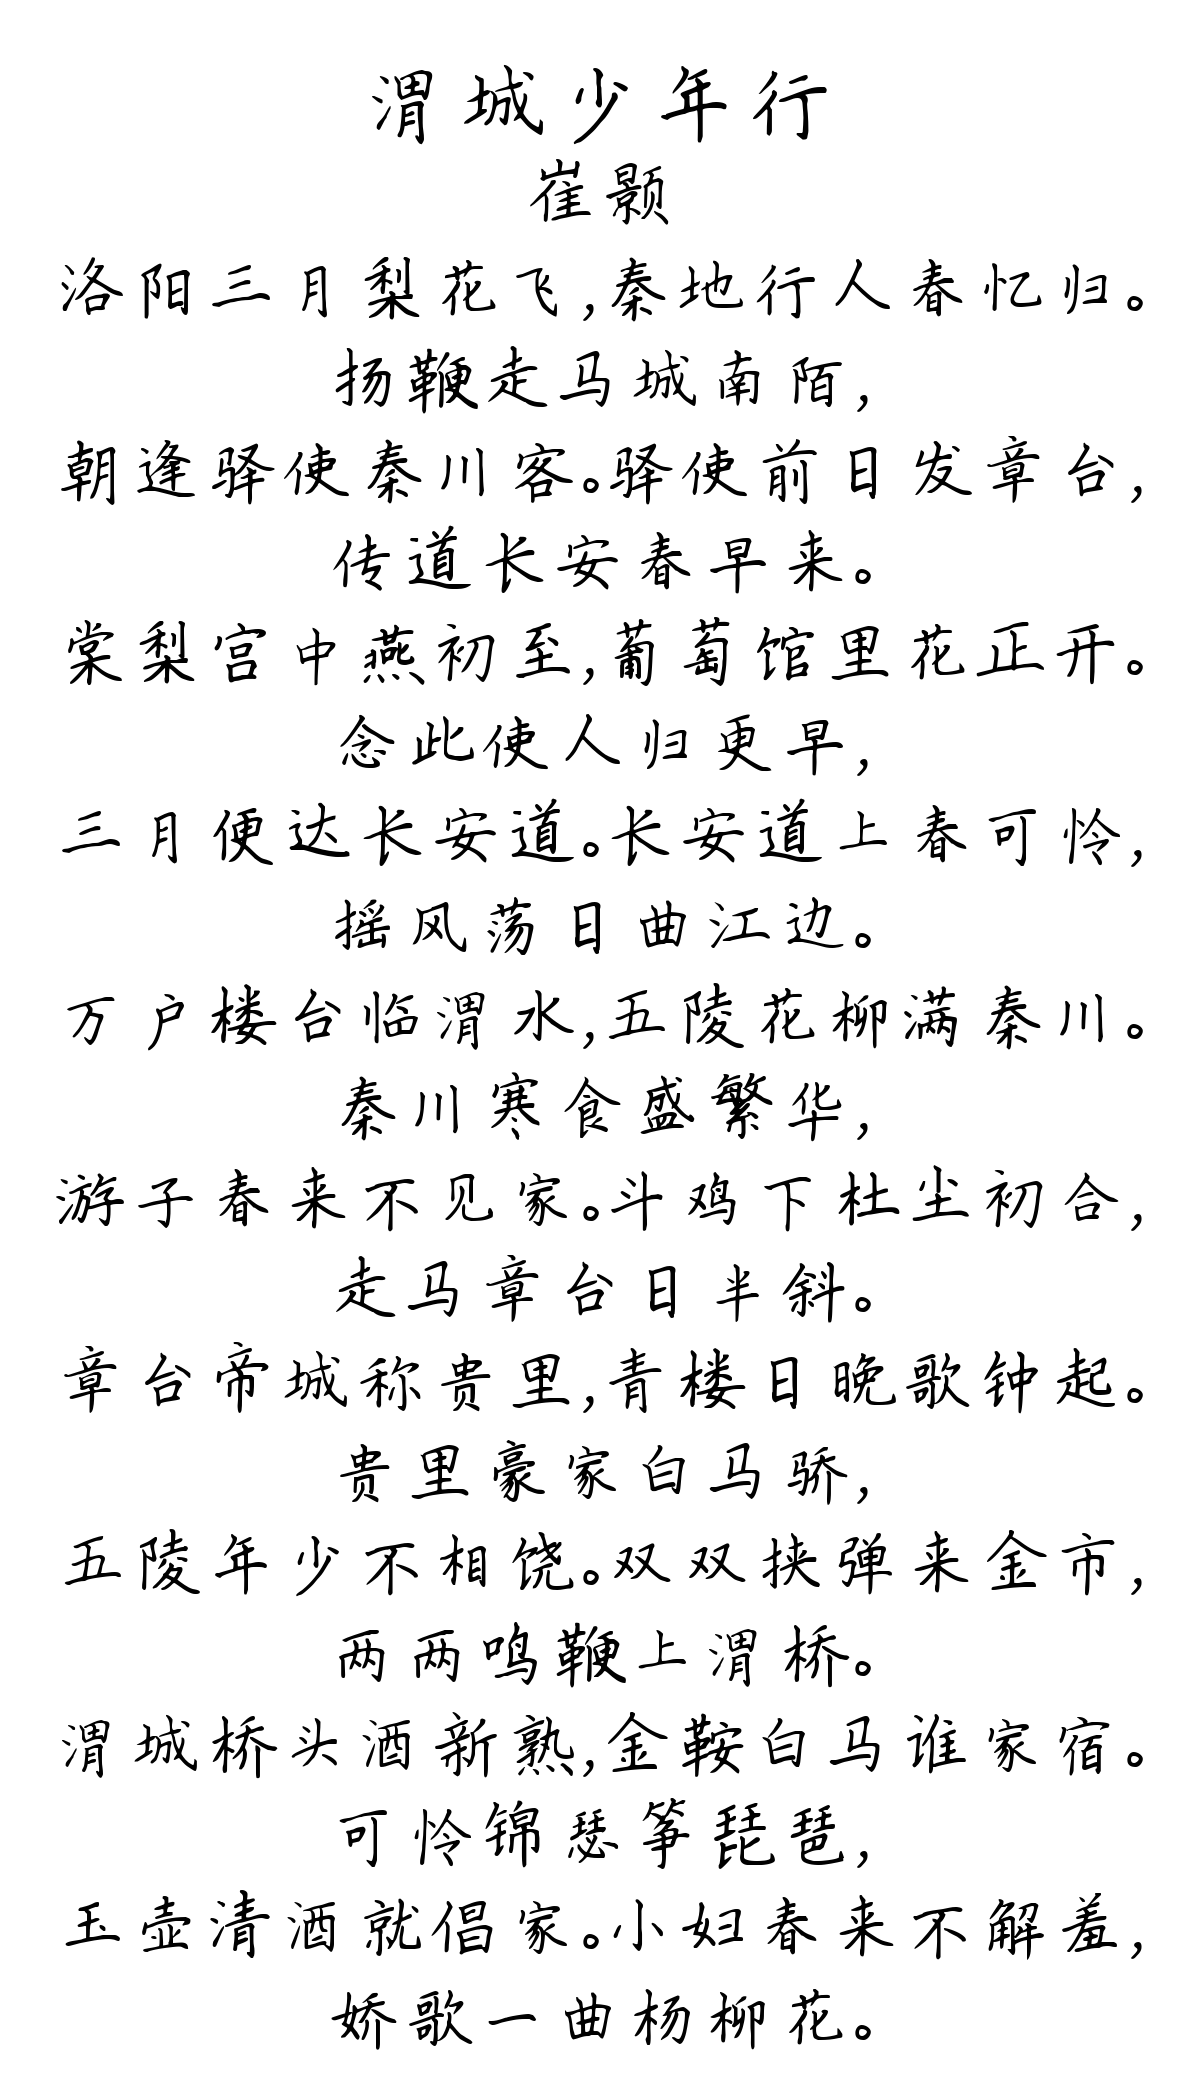 渭城少年行
崔颢
洛阳三月梨花飞,秦地行人春忆归。
扬鞭走马城南陌,
朝逢驿使秦川客。驿使前日发章台,
传道长安春早来。
棠梨宫中燕初至,葡萄馆里花正开。
念此使人归更早,
三月便达长安道。长安道上春可怜,
摇风荡日曲江边。
万户楼台临渭水,五陵花柳满秦川。
秦川寒食盛繁华,
游子春来不见家。斗鸡下杜尘初合,
走马章台日半斜。
章台帝城称贵里,青楼日晚歌钟起。
贵里豪家白马骄,
五陵年少不相饶。双双挟弹来金市,
两两鸣鞭上渭桥。
渭城桥头酒新熟,金鞍白马谁家宿。
可怜锦瑟筝琵琶,
玉壶清酒就倡家。小妇春来不解羞,
娇歌一曲杨柳花。